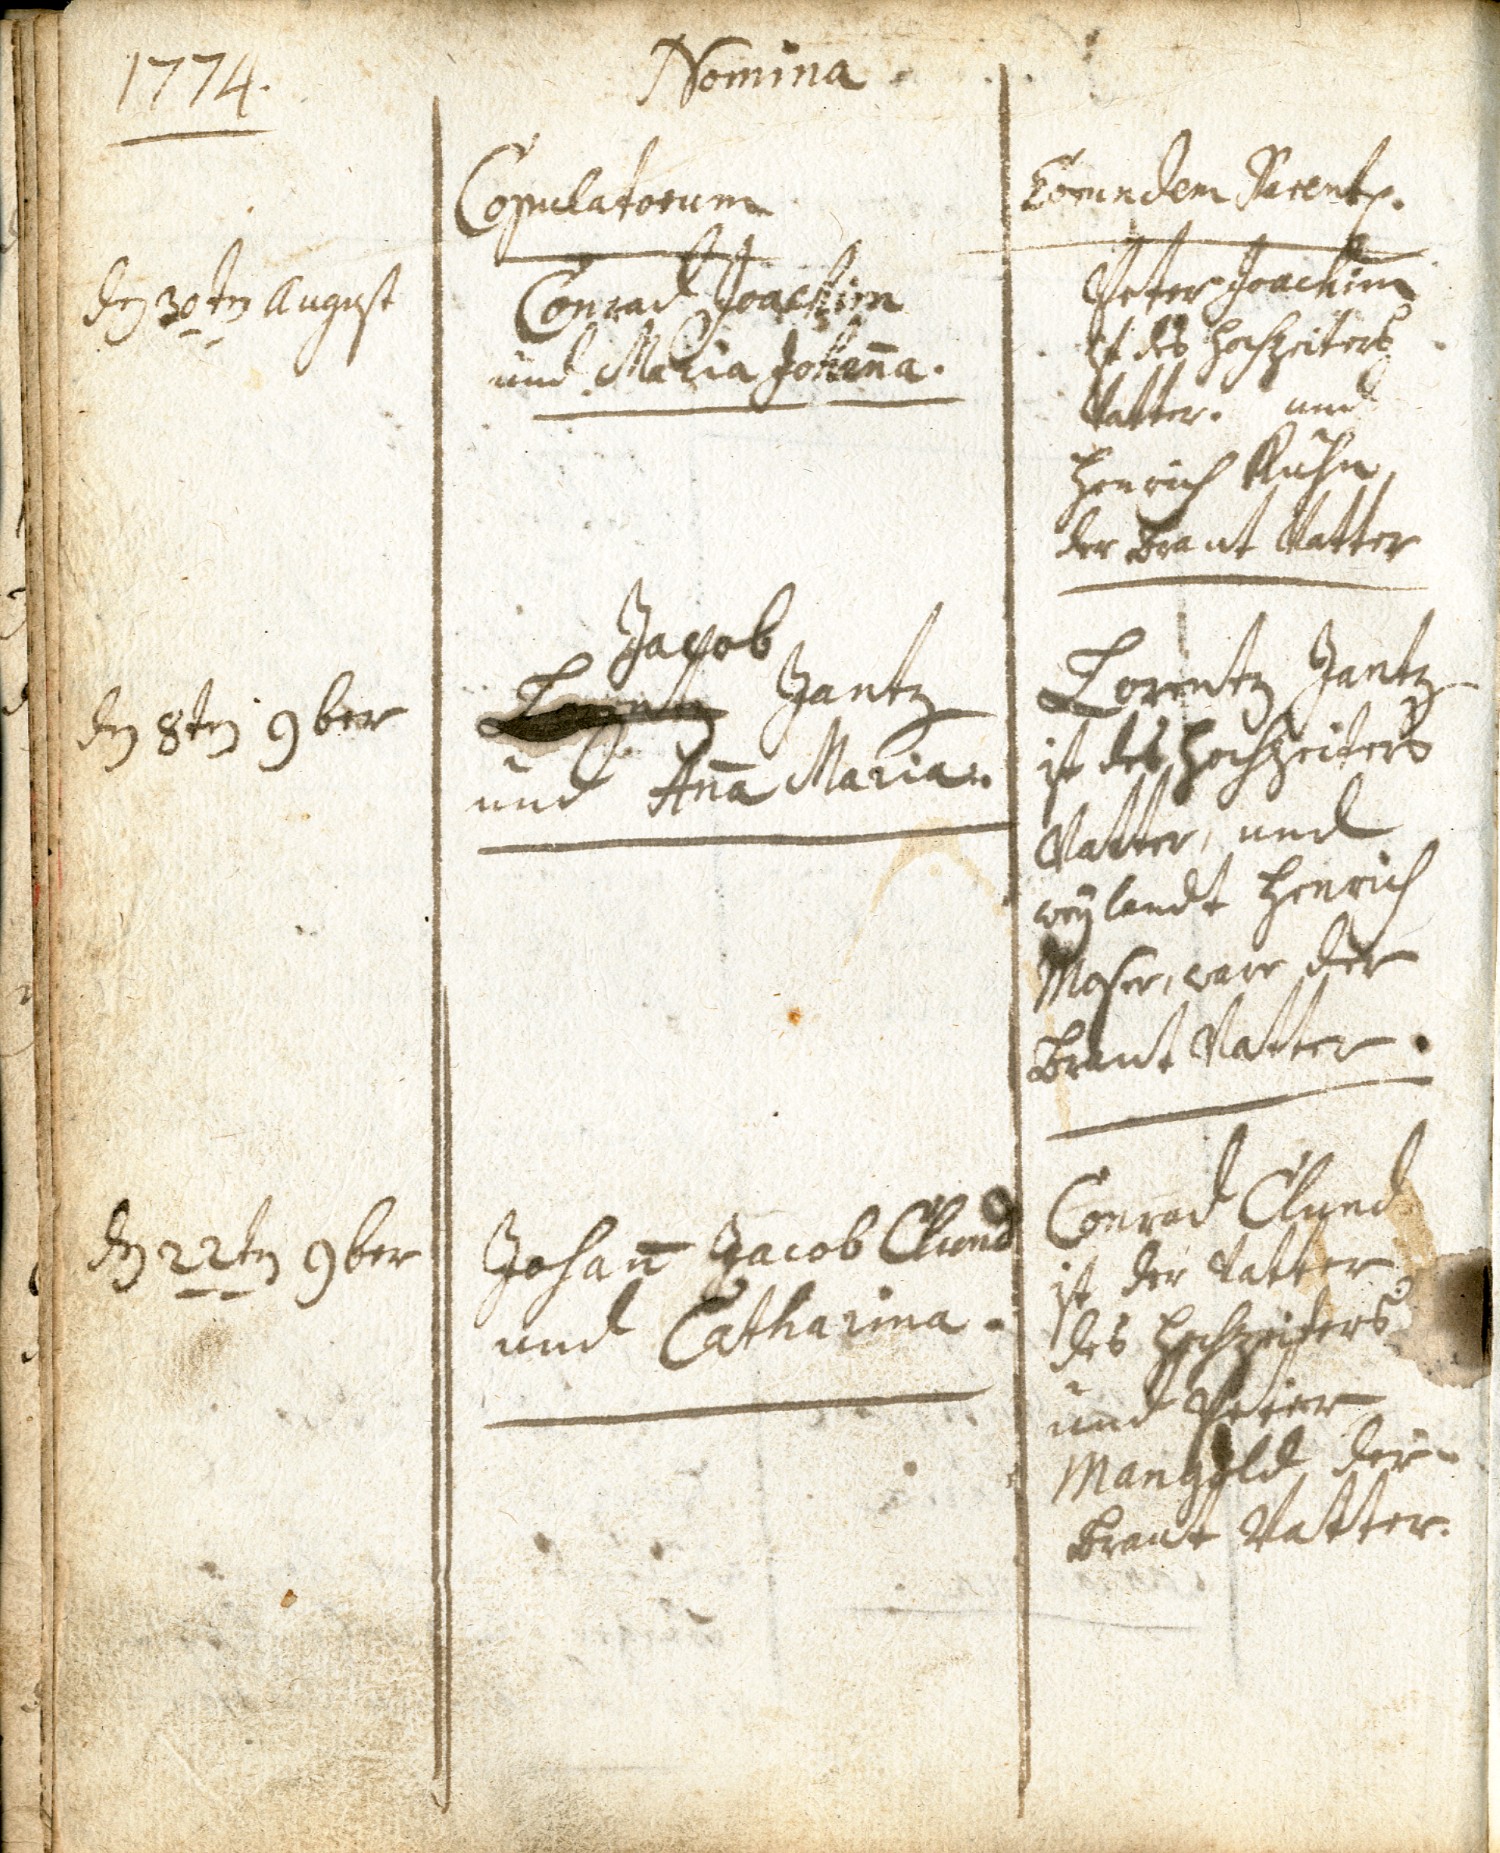 1774.
Nomina
Copulatorum
Eorundem Parent.
den 30ten August
Conrad Joachim
und Maria Johan̄a.
Peter Joachim
ist des Hochzeiters
Vatter. und
Henrich Kuhn
der Braut Vatter
den 8ten 9ber
Jacob
Lorentz Jantz
und An̄a Maria.
Lorentz Jantz
ist des Hochzeiters
Vatter, und
weylandt Henrich
Moser, ware der
Braut Vatter.
den 22ten 9ber
Johan̄ Jacob Clund
und Catharina.
Conrad Clund
ist der Vatter
des Hochzeiters
und Peter
Mangold der
Braut Vatter.